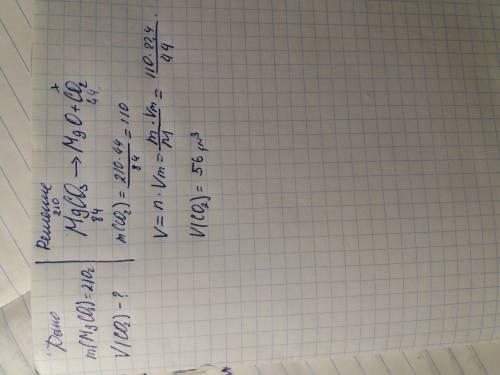 Дано
m(MgCO3)=210г
V(CO2) - ?
Решение
210 x
MgCO3 → MgO + CO2
84 44
m(CO2) = 210·44 / 84 = 110
V = n · Vm = m · Vm / M = 110·22,4 / 44
V(CO2) = 56 дм³